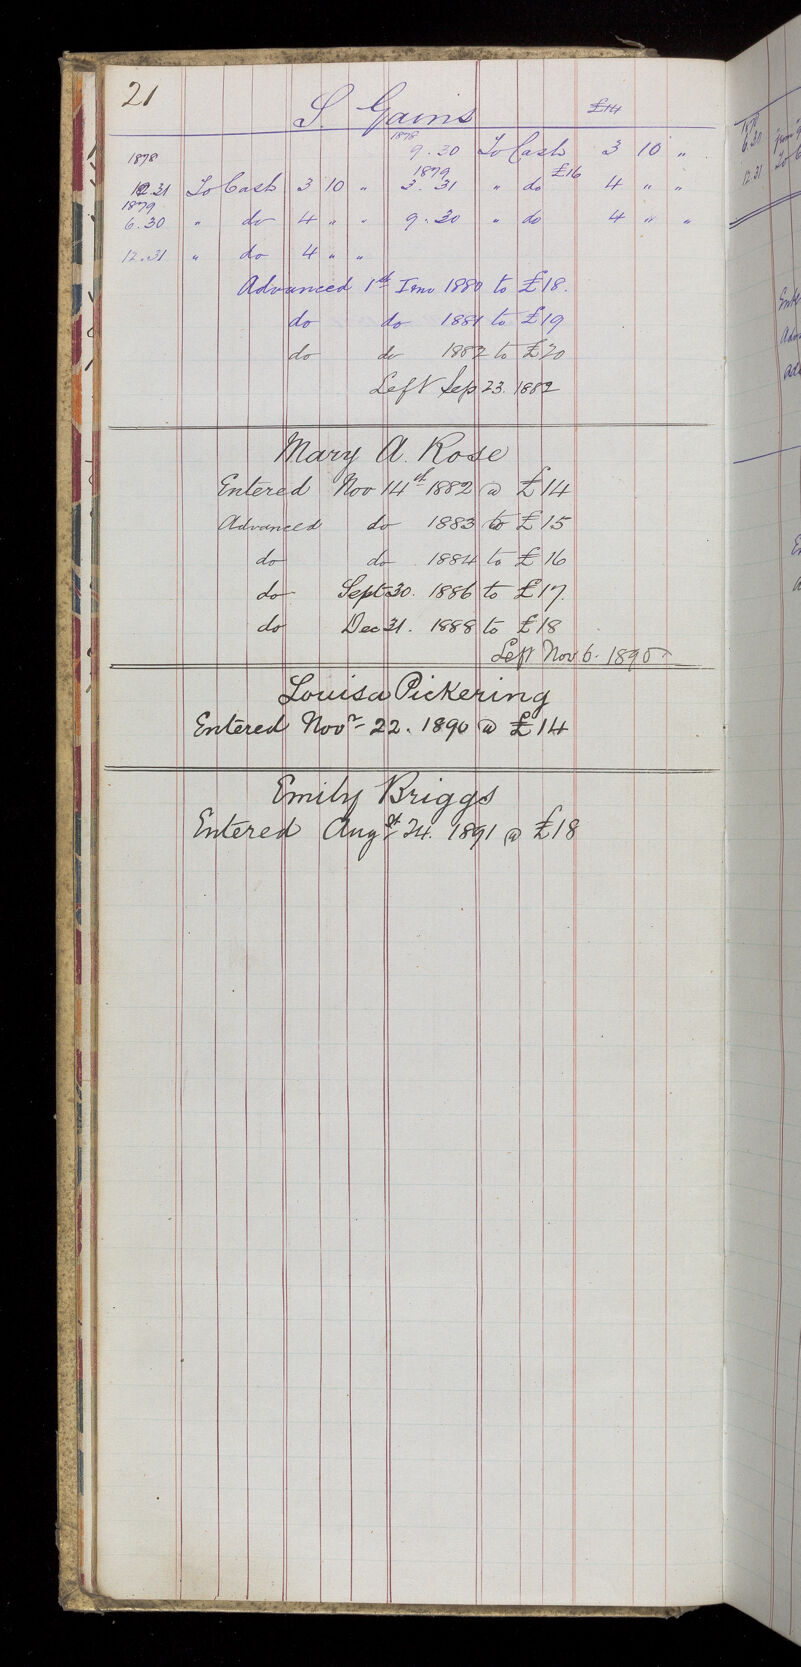 21
S. Gains £14
1878
1878 9.30 To Cash 3 10 "
1879 £16
12.31 To Cash 3 10 " 3.31 " do 4 " "
1879
6.30 " do 4 " " 9.30 " do 4 " "
12.31 " do 4 " "
Advanced 1st 1880 to £18.
do do 1881 to £19
do do 1882 to £20
Left Sep 23. 1882
Mary A. Rose
Entered Nov 14th 1882 @ £14
Advanced do 1883 to £15
do do 1884 to £16
do Sept 30. 1886 to £17.
do Dec 31. 1888 to £18
Left Nov 6. 1890
Louisa Pickering
Entered Novr 22. 1890 @ £14
Emily Briggs
Entered Augst 24. 1891 @ £18
1878
6.30
12.31